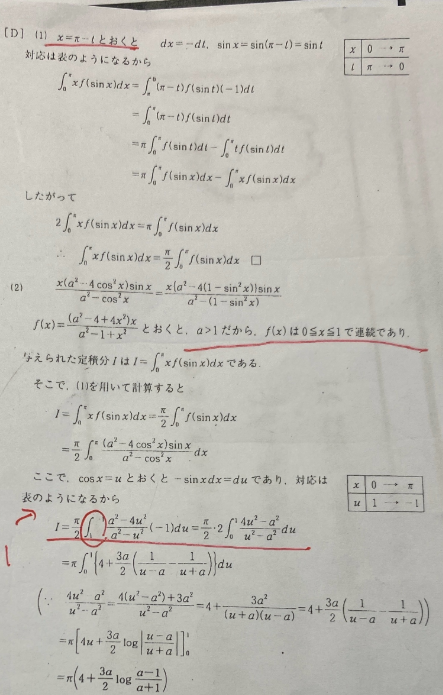 [D] (1) x=π−tとおくと dx=−dt, sin x=sin(π−t)=sin t
x 0 → π
t π → 0
対応は表のようになるから
∫₀^π xf(sin x)dx=∫_π^0 (π−t)f(sin t)(−1)dt
=∫₀^π (π−t)f(sin t)dt
=π∫₀^π f(sin t)dt−∫₀^π tf(sin t)dt
=π∫₀^π f(sin x)dx−∫₀^π xf(sin x)dx
したがって
2∫₀^π xf(sin x)dx=π∫₀^π f(sin x)dx
∴ ∫₀^π xf(sin x)dx=π/2 ∫₀^π f(sin x)dx □
(2) x(a²−4cos²x)sin x/(a²−cos²x)=x{a²−4(1−sin²x)}sin x/(a²−(1−sin²x))
f(x)=(a²−4+4x²)x/(a²−1+x²) とおくと, a>1だから, f(x)は0≦x≦1で連続であり,
与えられた定積分Iは I=∫₀^π xf(sin x)dx である.
そこで, (1)を用いて計算すると
I=∫₀^π xf(sin x)dx=π/2 ∫₀^π f(sin x)dx
=π/2 ∫₀^π (a²−4cos²x)sin x/(a²−cos²x) dx
ここで, cos x=uとおくと −sin xdx=du であり, 対応は
x 0 → π
u 1 → −1
表のようになるから
I=π/2 ∫ (a²−4u²)/(a²−u²) (−1)du=π/2・2∫₀^1 (4u²−a²)/(u²−a²) du
=π∫₀^1 {4+3a/2 (1/(u−a) − 1/(u+a))}du
(∵ (4u²−a²)/(u²−a²)=(4(u²−a²)+3a²)/(u²−a²)=4+3a²/((u+a)(u−a))=4+3a/2 (1/(u−a) − 1/(u+a)))
=π[4u+3a/2 log|(u−a)/(u+a)|]₀^1
=π(4+3a/2 log (a−1)/(a+1))